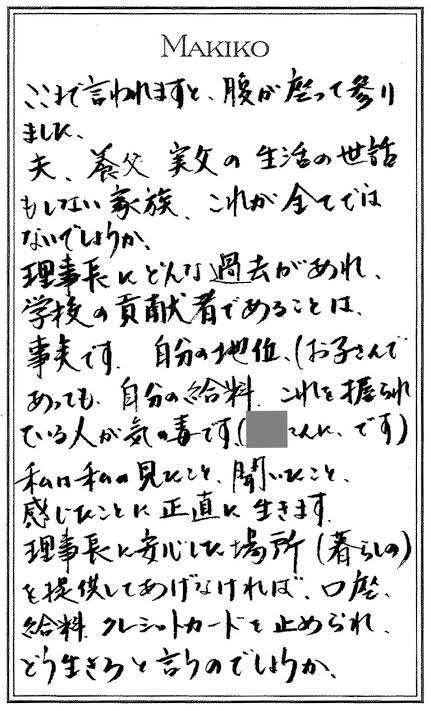 MAKIKO
ここまで言われますと、腹が座って参り
ました。
夫、養父 実父の生活の世話
もしない家族、これが全てでは
ないでしょうか、
理事長にどんな過去があれ、
学校の貢献者であることは、
事実です。自分の地位、(お子さんで
あっても、自分の給料、これを握られ
ている人が気の毒です(さんに、です)
私は私の見たこと、聞いたこと、
感じたことに正直に生きます。
理事長に安心した場所(暮らしの)
を提供してあげなければ、口座、
給料、クレジットカードを止められ、
どう生きろと言うのでしょうか、